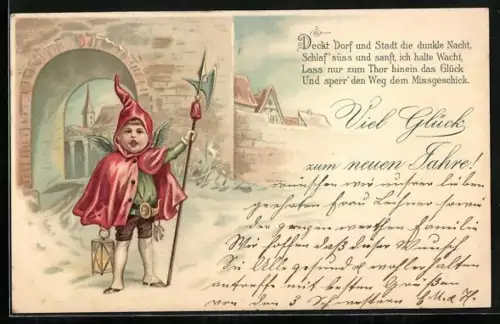 Deckt Dorf und Stadt die dunkle Nacht,
Schlaf' süss und sanft, ich halte Wacht,
Lass nur zum Thor hinein das Glück
Und sperr' den Weg dem Missgeschick.
Viel Glück
zum neuen Jahre!
wünschen wir unsrer lieben
geehrten Frau Lechner sowie
der ganzen werthen Familie
Wir hoffen daß dieser Wunsch
Sie Alle gesund & wohlerhalten
antreffe mit besten Grüßen
von den 3 Schwestern E. M. & H.